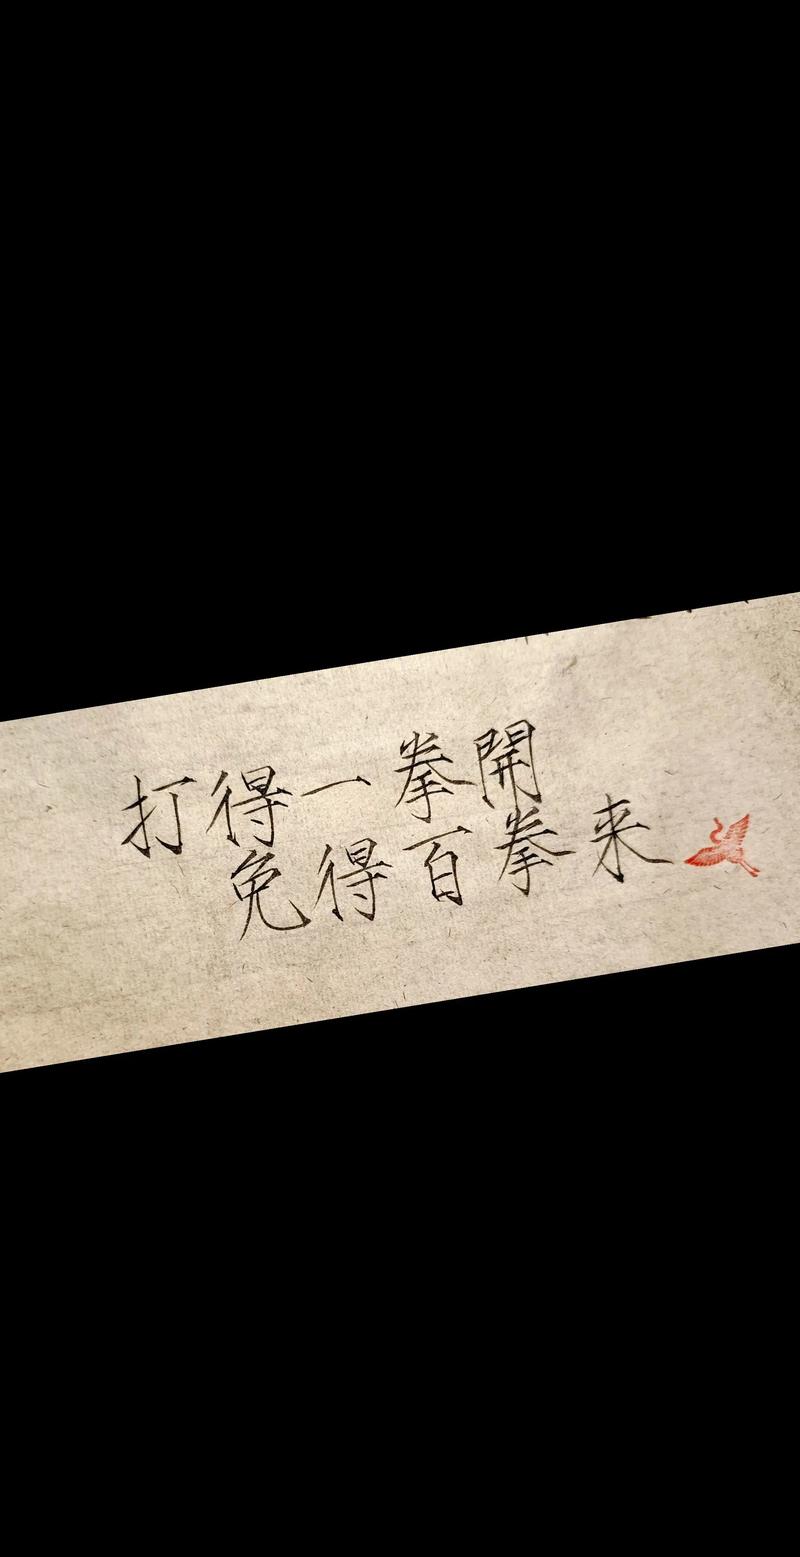 打得一拳開
免得百拳来